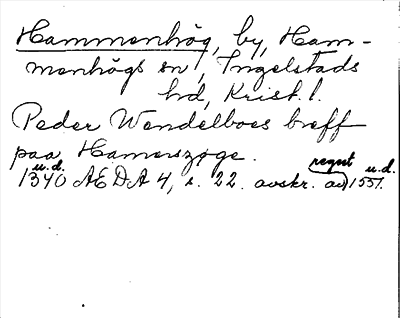 Hammenhög, by, Ham-
menhögs sn, Ingelstads
hd, Krist. l.
Peder Wendelboes breff
paa Hamerszøge.
u.d. regest u.d.
1340 AEDA 4, s. 22. avskr. av 1551.